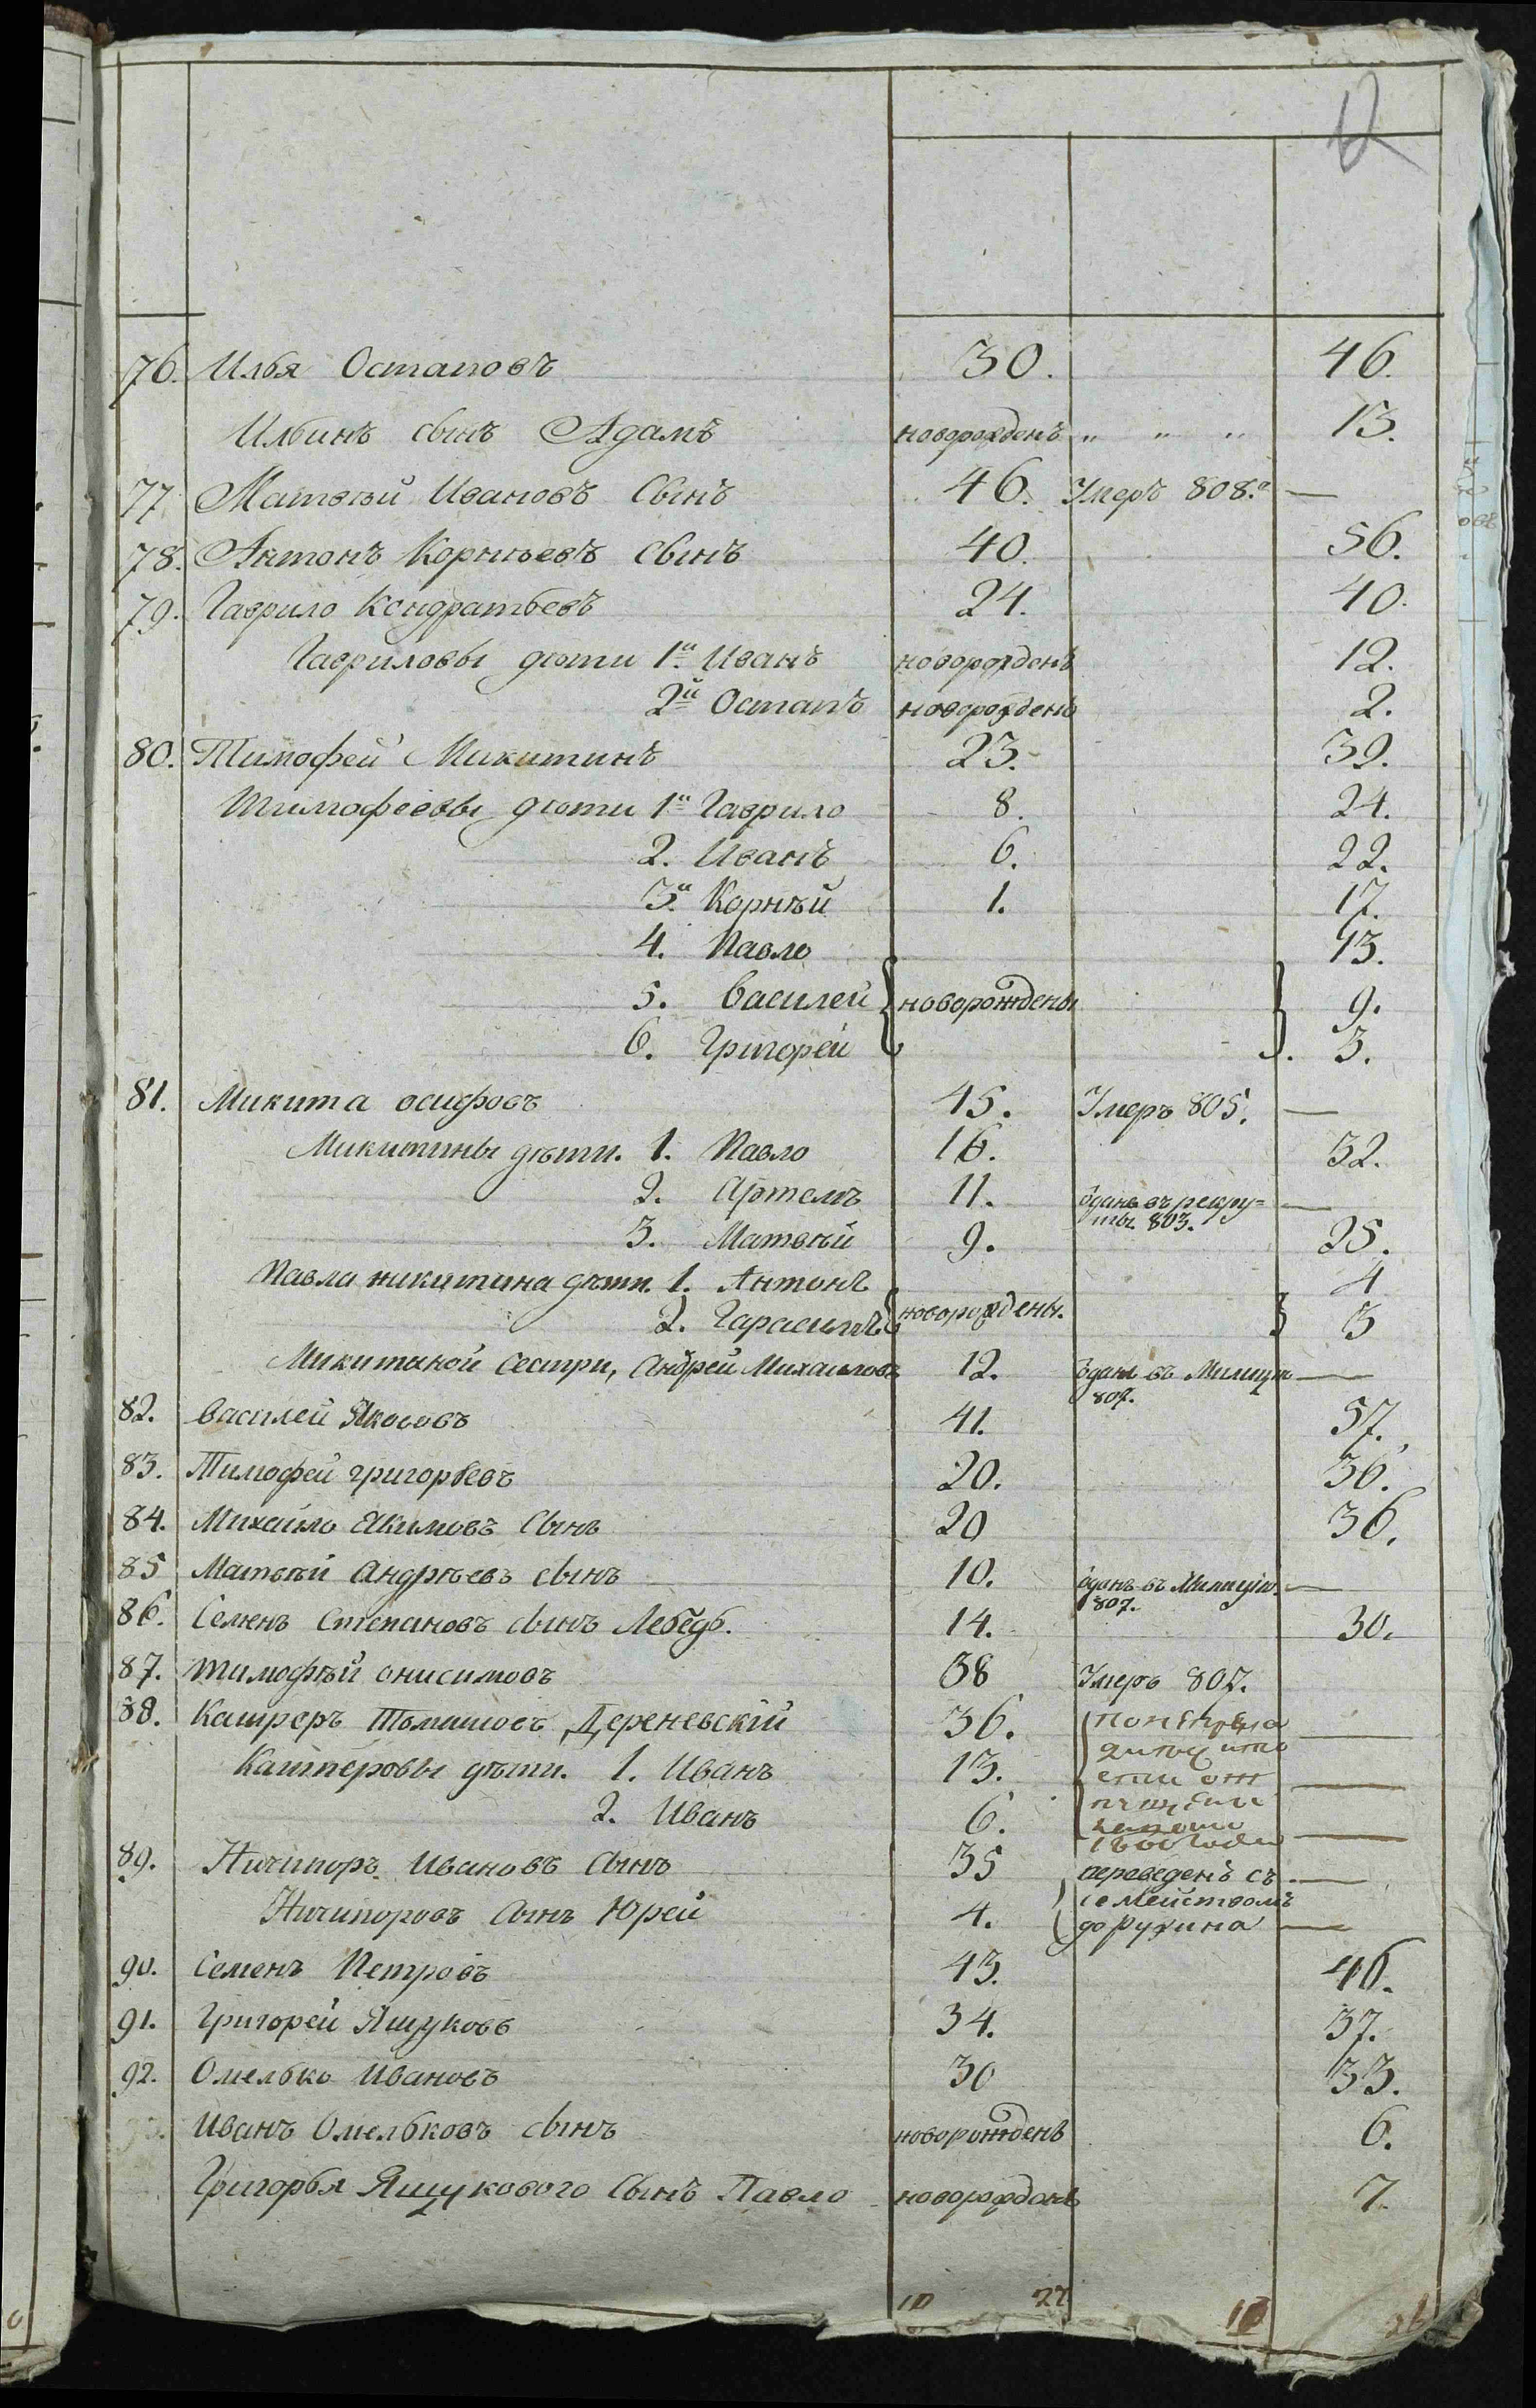 12
76. Илья Остаповъ 30. 46.
Ильинъ сынъ Адамъ новорожденъ „ „ „ 13.
77. Матвѣй Ивановъ Сынъ 46. Умеръ 808.го —
78. Антонъ Корнѣевъ Сынъ 40. 56.
79. Гаврило Кондратьевъ 24. 40.
Гавриловы дѣти 1й Иванъ новорожденъ 12.
2й Остапъ новорожденъ 2.
80. Тимофей Микитинъ 23. 39.
Тимофеевы дѣти 1й Гаврило 8. 24.
2. Иванъ 6. 22.
3й Корнѣй 1. 17.
4. Павло 13.
5. Василей новорождены 9.
6. Григорей 3.
81. Микита осифовъ 45. Умеръ 805. —
Микитины дѣти. 1. Павло 16. 32.
2. Артемъ 11. о̂данъ въ рекру= —
ты 803.
3. Матвѣй 9. 25.
Павла никитина дѣти. 1. Антонъ 4
2. Гарасимъ новорождены. 3
Микитиной сестри, Андрей Михаиловъ 12. о̂данъ въ Милицію —
807.
82. Василей Якововъ 41. 57.
83. Тимофей григорьевъ 20. 36.
84. Михайло Якимовъ Сынъ 20 36.
85 Матвѣй Андрѣевъ сынъ 10. о̂данъ въ Милицію. —
807.
86. Семенъ Степановъ сынъ Лебедь. 14. 30.
87. Тимофѣй онисимовъ 38 Умеръ 807.
88. Касперъ Томашовъ Дереневскій 36. —
Касперовы дѣти. 1. Иванъ 13. —
2. Иванъ 6. —
89. Ничипоръ Ивановъ Сынъ 35 переведенъ съ —
семействомъ
Ничипоровъ Сынъ Юрей 4. до Ружина —
90. Семенъ Петровъ 43. 46.
91. Григорей Ящуковъ 34. 37.
92. Омелько Ивановъ 30 33.
93. Иванъ Омельковъ сынъ новорожденъ 6.
Григорья Ящукового Сынъ Павло новорожденъ 7.
10 22 10 26